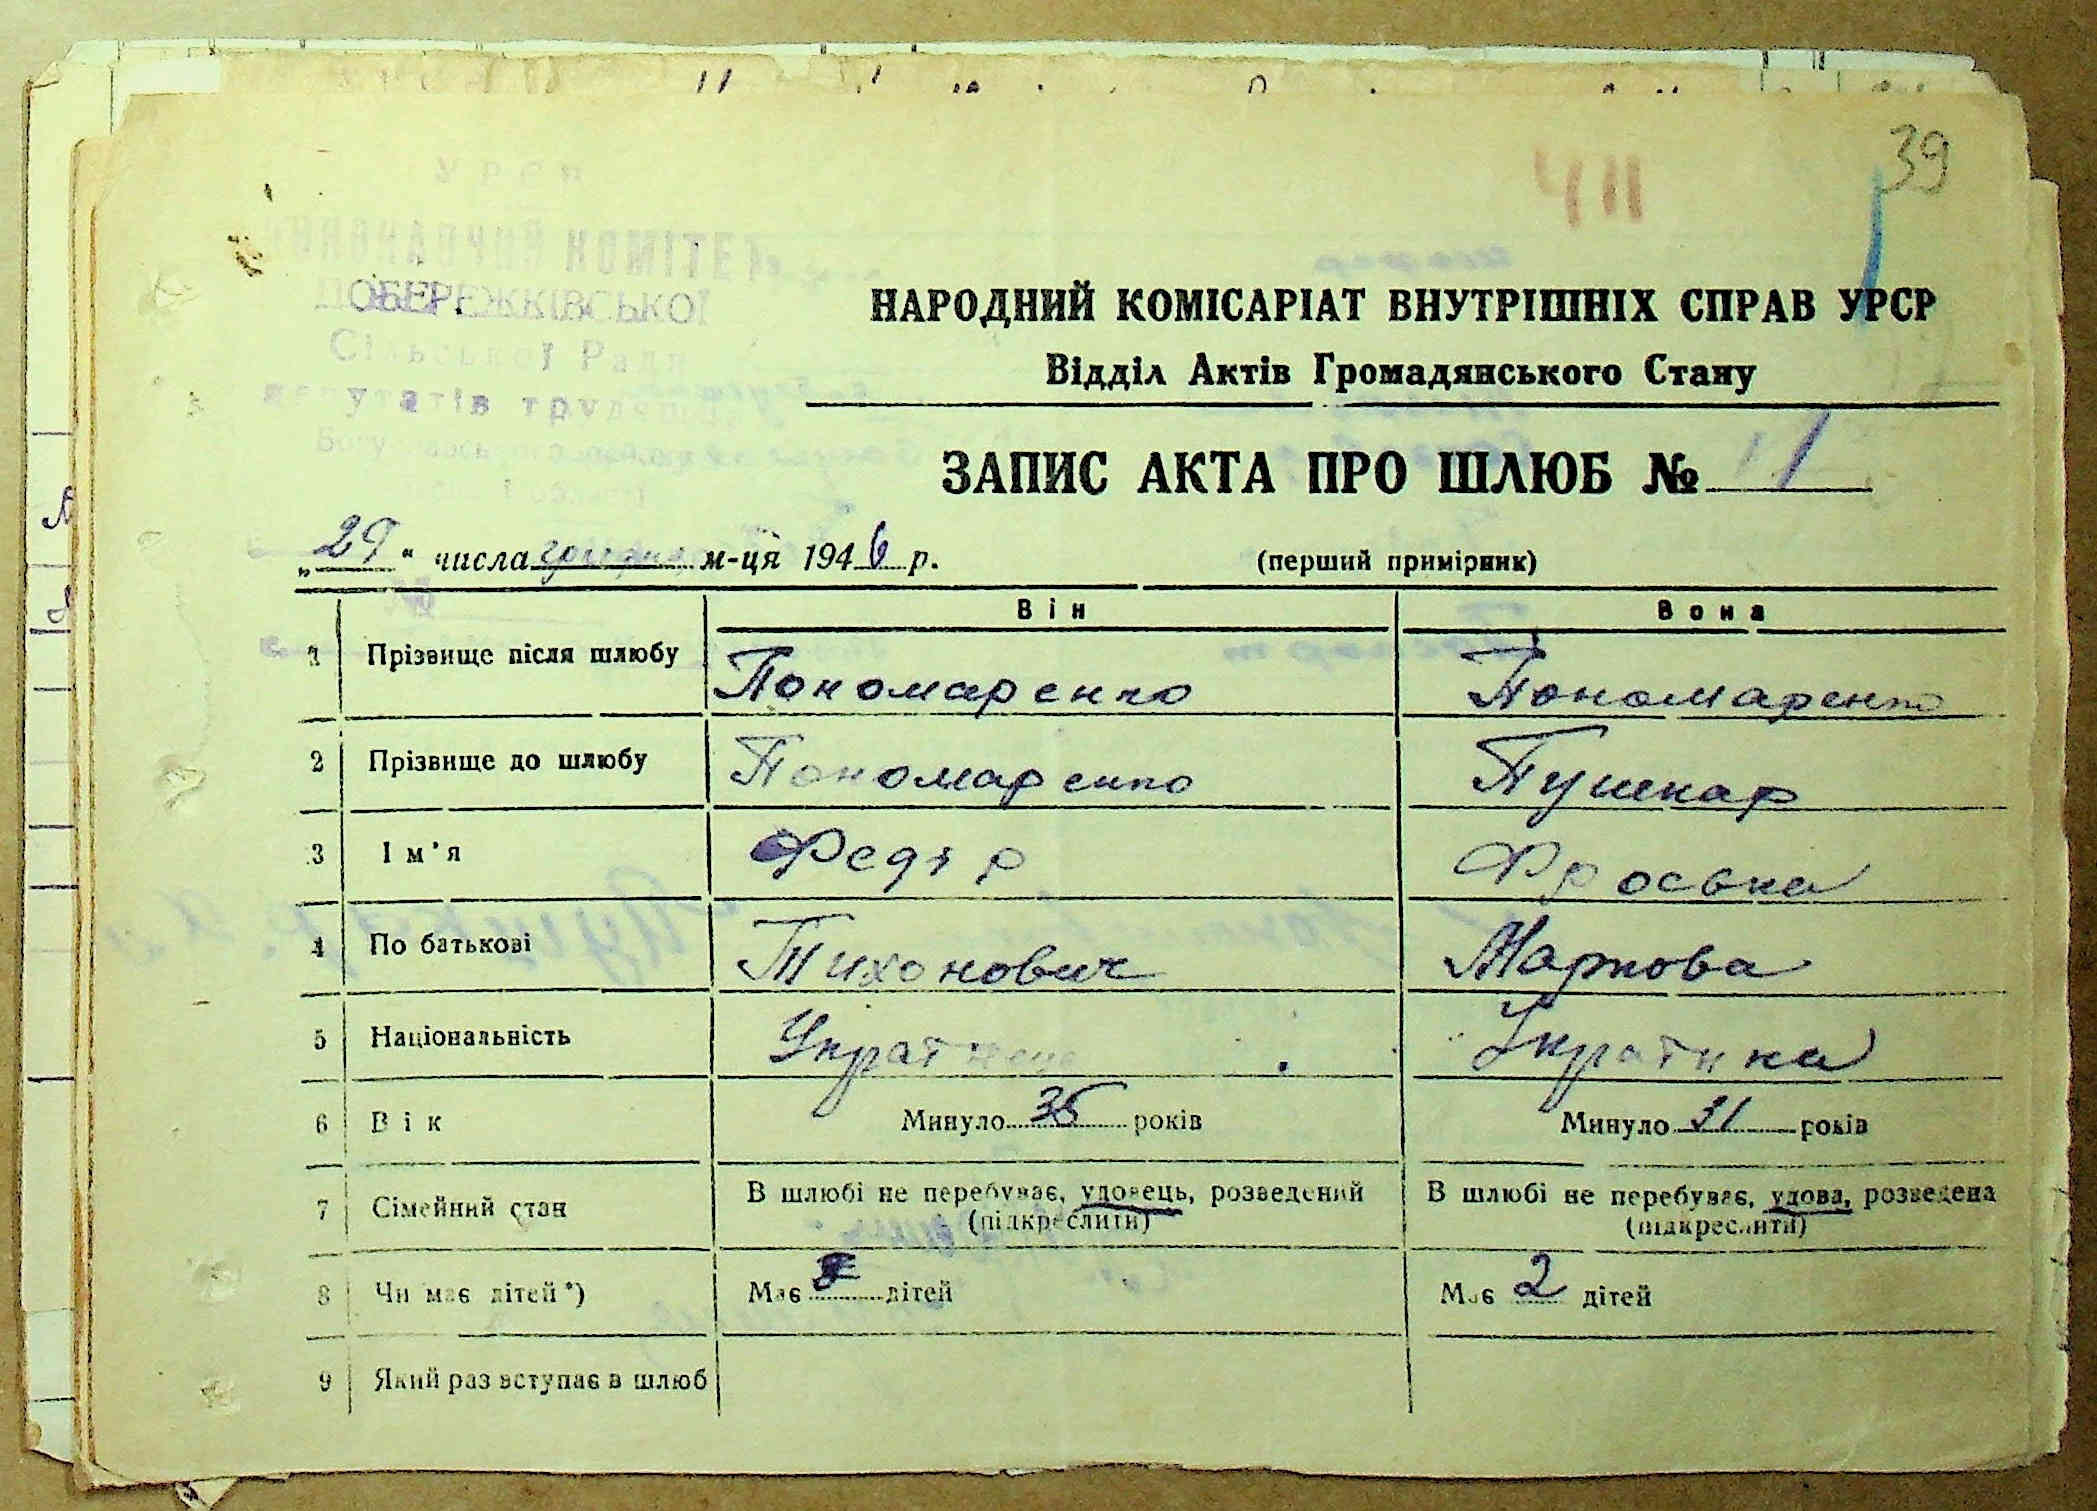 39
411
УРСР
ВИКОНАВЧИЙ КОМІТЕТ
ПОБЕРЕЖКІВСЬКОЇ
Сільської Ради
депутатів трудящих
НАРОДНИЙ КОМІСАРІАТ ВНУТРІШНІХ СПРАВ УРСР
Відділ Актів Громадянського Стану
ЗАПИС АКТА ПРО ШЛЮБ № 11
„29“ числа грудня м-ця 1946 р. (перший примірник)
Він Вона
1 Прізвище після шлюбу Пономаренко Пономаренко
2 Прізвище до шлюбу Пономаренко Пушкар
3 Ім'я Федір Фросина
4 По батькові Тихонович Маркова
5 Національність Украінець Украінка
6 Вік Минуло 35 років Минуло 31 років
7 Сімейний стан В шлюбі не перебуває, удовець, розведений В шлюбі не перебуває, удова, розведена
(підкреслити) (підкреслити)
8 Чи має дітей*) Має дітей Має 2 дітей
9 Який раз вступає в шлюб